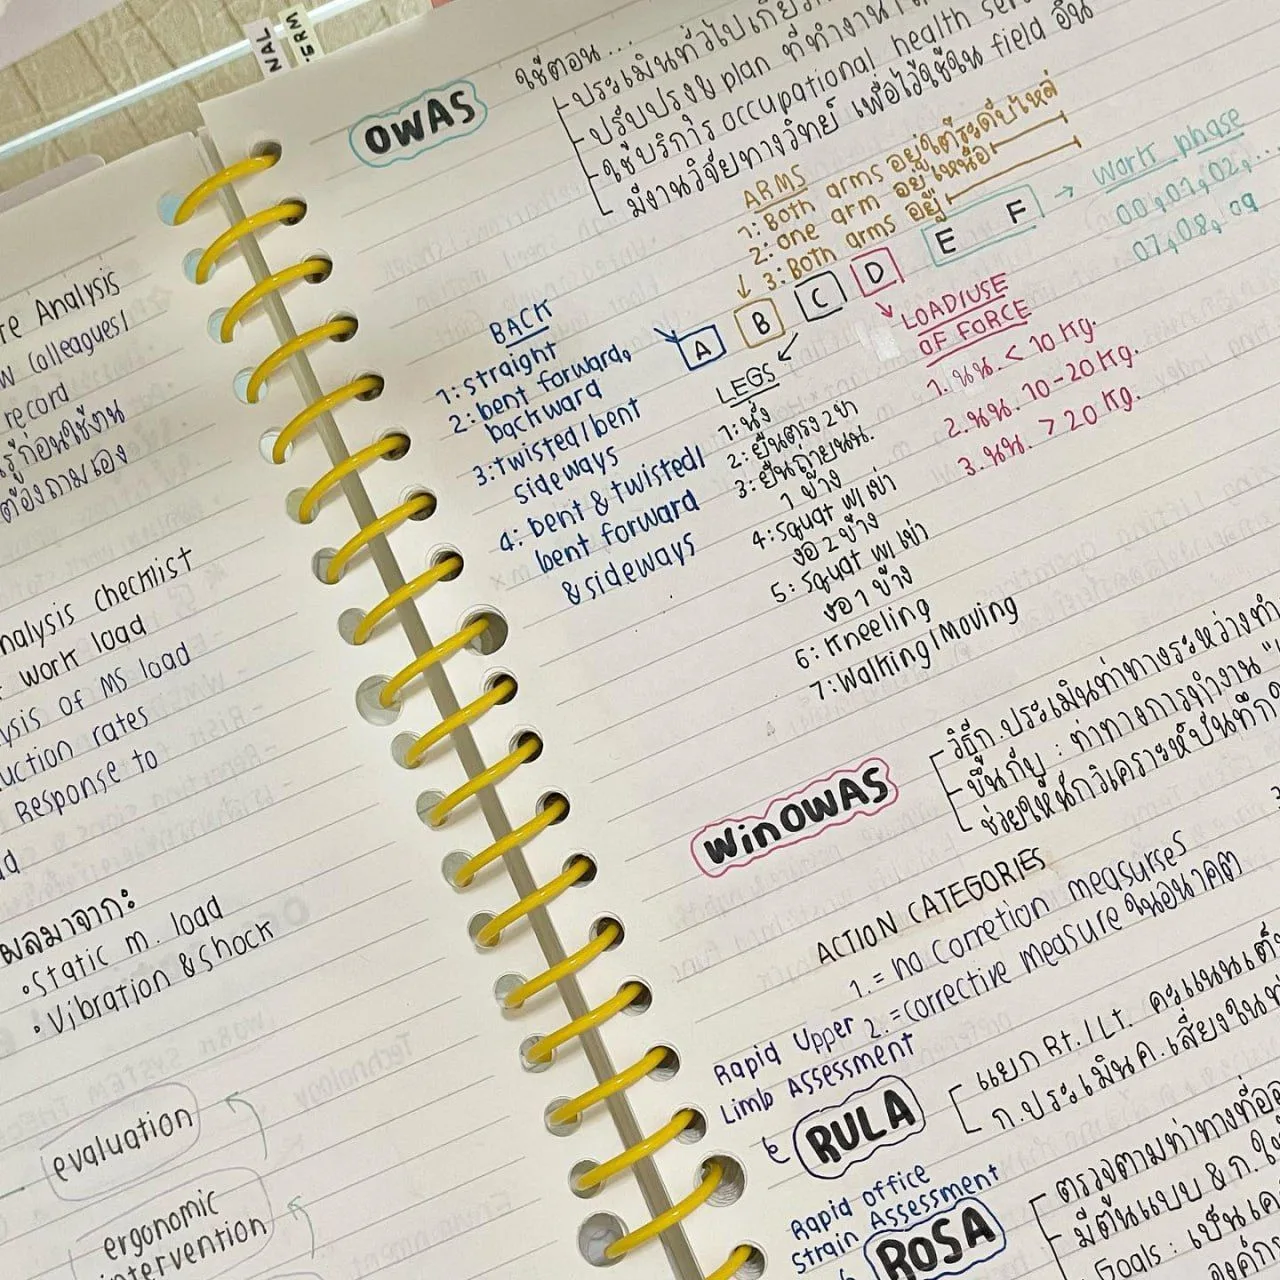 NAL
SRM
re Analysis
w Colleagues/
record
รู้ก่อนใช้งาน
ต้องถามเอง
nalysis checklist
work load
ysis of MS load
uction rates
Response to
ผลมาจาก:
• Static m. load
• Vibration & Shock
evaluation
ergonomic
intervention
OWAS
ใช้ตอน...
ประเมินทั่วไปเกี่ยว
ปรับปรุง plan ที่ทำงาน
ใช้บริการ occupational health
มีงานวิจัยทางวิทย์ เพื่อไว้ใช้ใน field อื่น
ARMS
1: Both arms อยู่ใต้ระดับไหล่
2: one arm อยู่เหนือ
3: Both arms อยู่
A B C D E F → work phase
00, 01, 02, ...
07, 08, 09
BACK
1: straight
2: bent forward,
backward
3: twisted/bent
sideways
4: bent & twisted/
bent forward
& sideways
LEGS
1: นั่ง
2: ยืนตรง 2 ขา
3: ยืนถ่ายนน.
1 ข้าง
4: squat w/ เข่า
งอ 2 ข้าง
5: squat w/ เข่า
งอ 1 ข้าง
6: Kneeling
7: Walking/Moving
LOAD/USE
OF FORCE
1. นน. < 10 kg.
2. นน. 10-20 kg.
3. นน. > 20 kg.
WinOWAS
วิธีก.ประเมินท่าทางระหว่างทำ
ขึ้นกับ : ท่าทางการทำงาน
ช่วยให้นักวิเคราะห์บันทึก
ACTION CATEGORIES
1. = no corretion measurses
2. = corrective measure ในอนาคต
Rapid Upper
Limb Assessment
RULA
แยก Rt. / Lt. คะแนนเต็
ก.ประเมินค.เสี่ยงใน
Rapid office
strain Assessment
ROSA
ตรวจตามท่าทางที่ออ
มีต้นแบบ & ก.ใ
Goals : เป็นเค
องค์กร